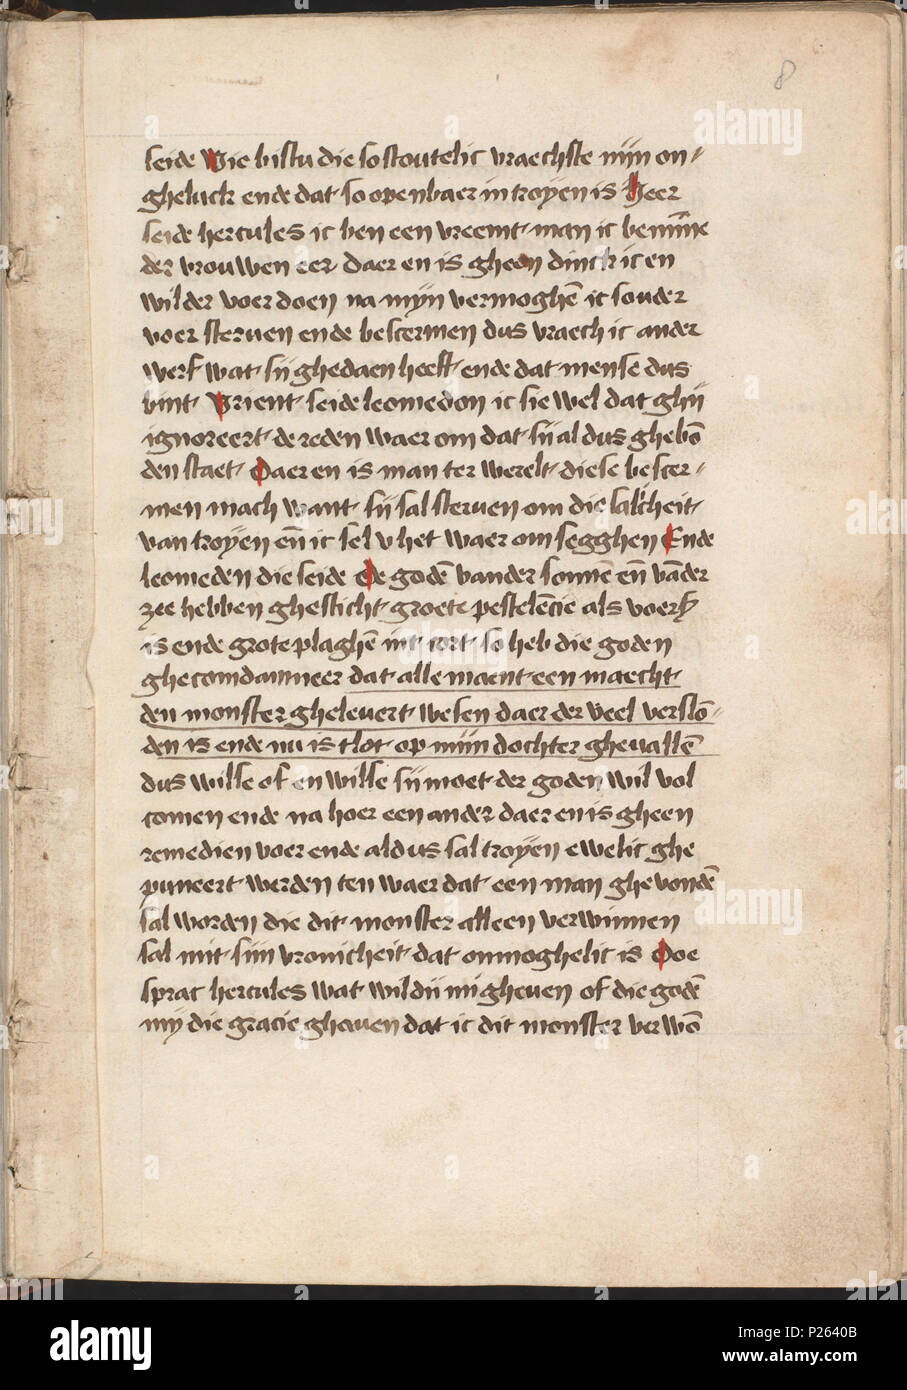 8
seide Wie bistu die so stoutelic vraechste mijn on-
gheluck ende dat so openbaer in troyen is Heer
seide hercules ic ben een vreemt man ic beminre
der vrouwen eer daer en is gheen dinck ic en
wilder voer doen na mijn vermoghē ic souder
voer steruen ende bescermen dus vraech ic ander
werf wat sij ghedaen heeft ende dat mense dus
bint Vrient seide leomedon ic sie wel dat ghij
ignoreert de reden waer om dat sij aldus ghebō
den staet Daer en is man ter werelt diese bescer-
men mach want sij sal steruen om die salicheit
van troyen eñ ic sel v het waer om segghen Ende
leomeden die seide De godē vander sonnē eñ vāder
zee hebben ghesticht groete pestelēcie als voerß
is ende grote plaghē int cort so heb die goden
ghecomdanneer dat alle maent een maecht
den monster gheleuert wesen daer der veel verslō-
den is ende nu is tlot op mijn dochter gheuallē
dus wille of en wille sij moet der goden wil vol
comen ende na hoer een ander daer en is gheen
remedien voer ende aldus sal troyen ewelic ghe
puneert werden ten waer dat een man gheuondē
sal worden die dit monster alleen verwinnen
sal mit sijn vromicheit dat onmoghelic is Doe
sprac hercules wat wildij mi gheuen of die godē
mij die gracie gheuen dat ic dit monster verwō
alamy
Image ID: P2640B
www.alamy.com